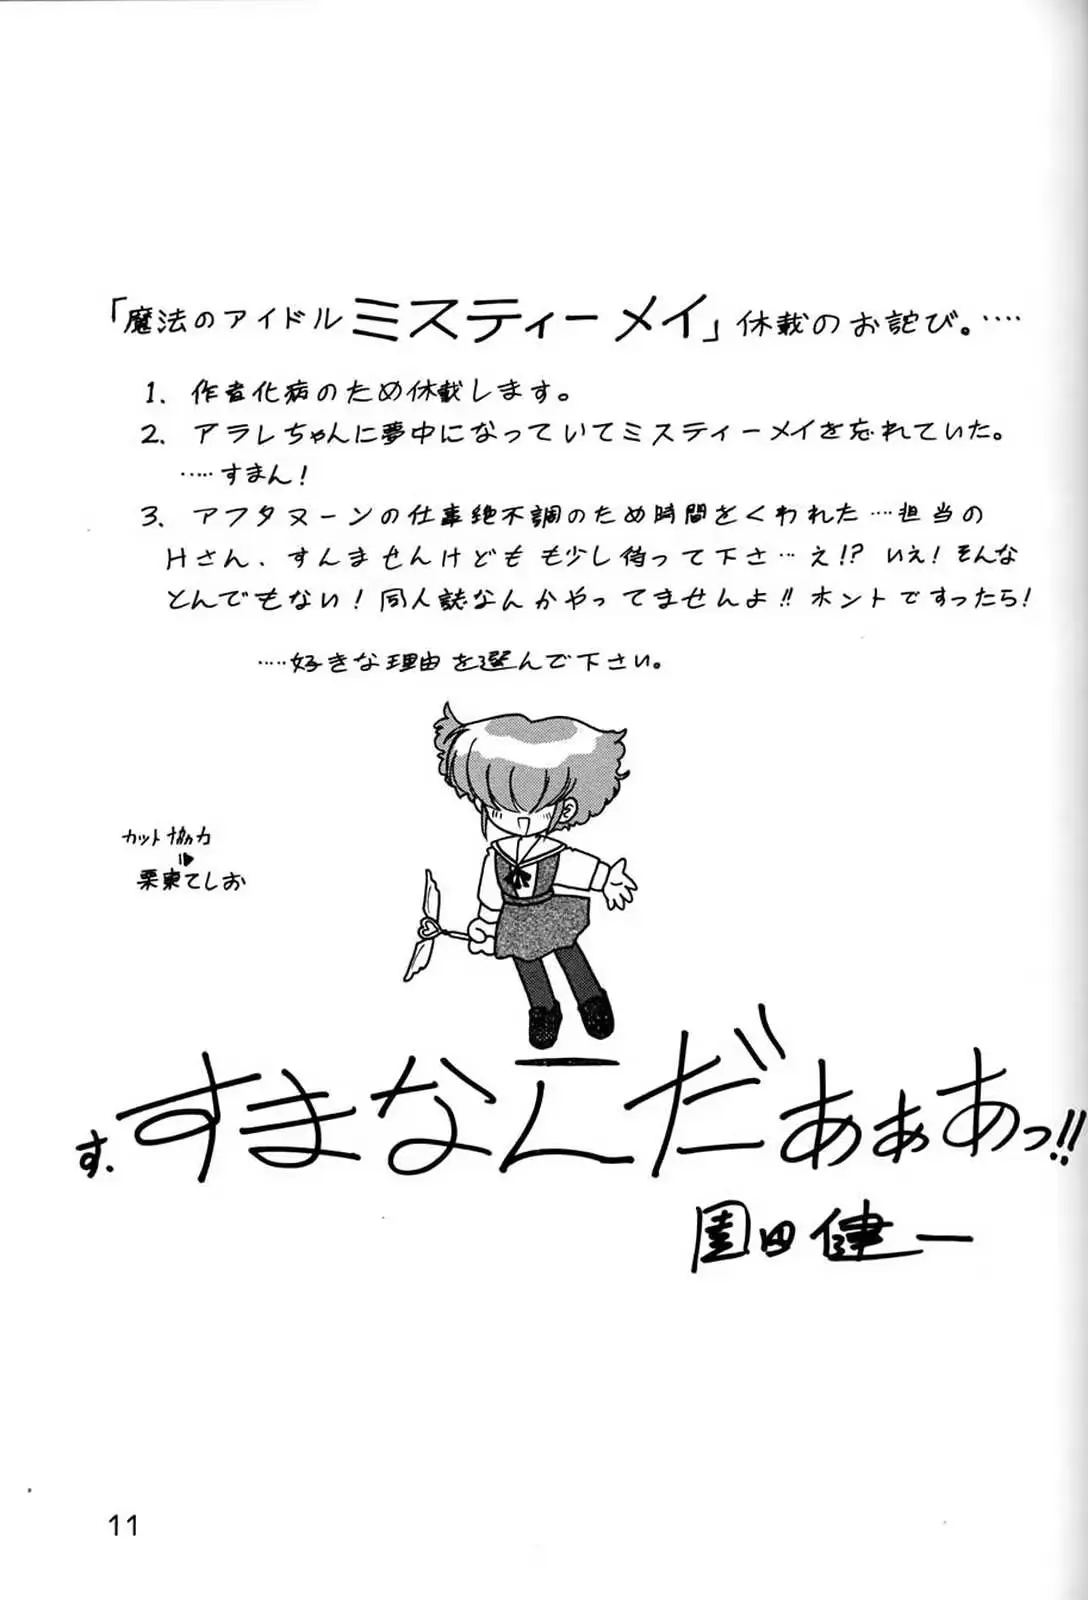 「魔法のアイドル ミスティーメイ」休載のお詫び。‥‥
1. 作者化病のため休載します。
2. アラレちゃんに夢中になっていてミスティーメイを忘れていた。
‥‥すまん!
3. アフタヌーンの仕事絶不調のため時間をくわれた‥‥担当の
Hさん、すんませんけども も少し待って下さ‥‥え!? いえ!そんな
とんでもない!同人誌なんかやってませんよ!! ホントですったら!
‥‥好きな理由を選んで下さい。
カット協力
栗東てしお
す.すまなんだあぁあっ!!
園田健一
11